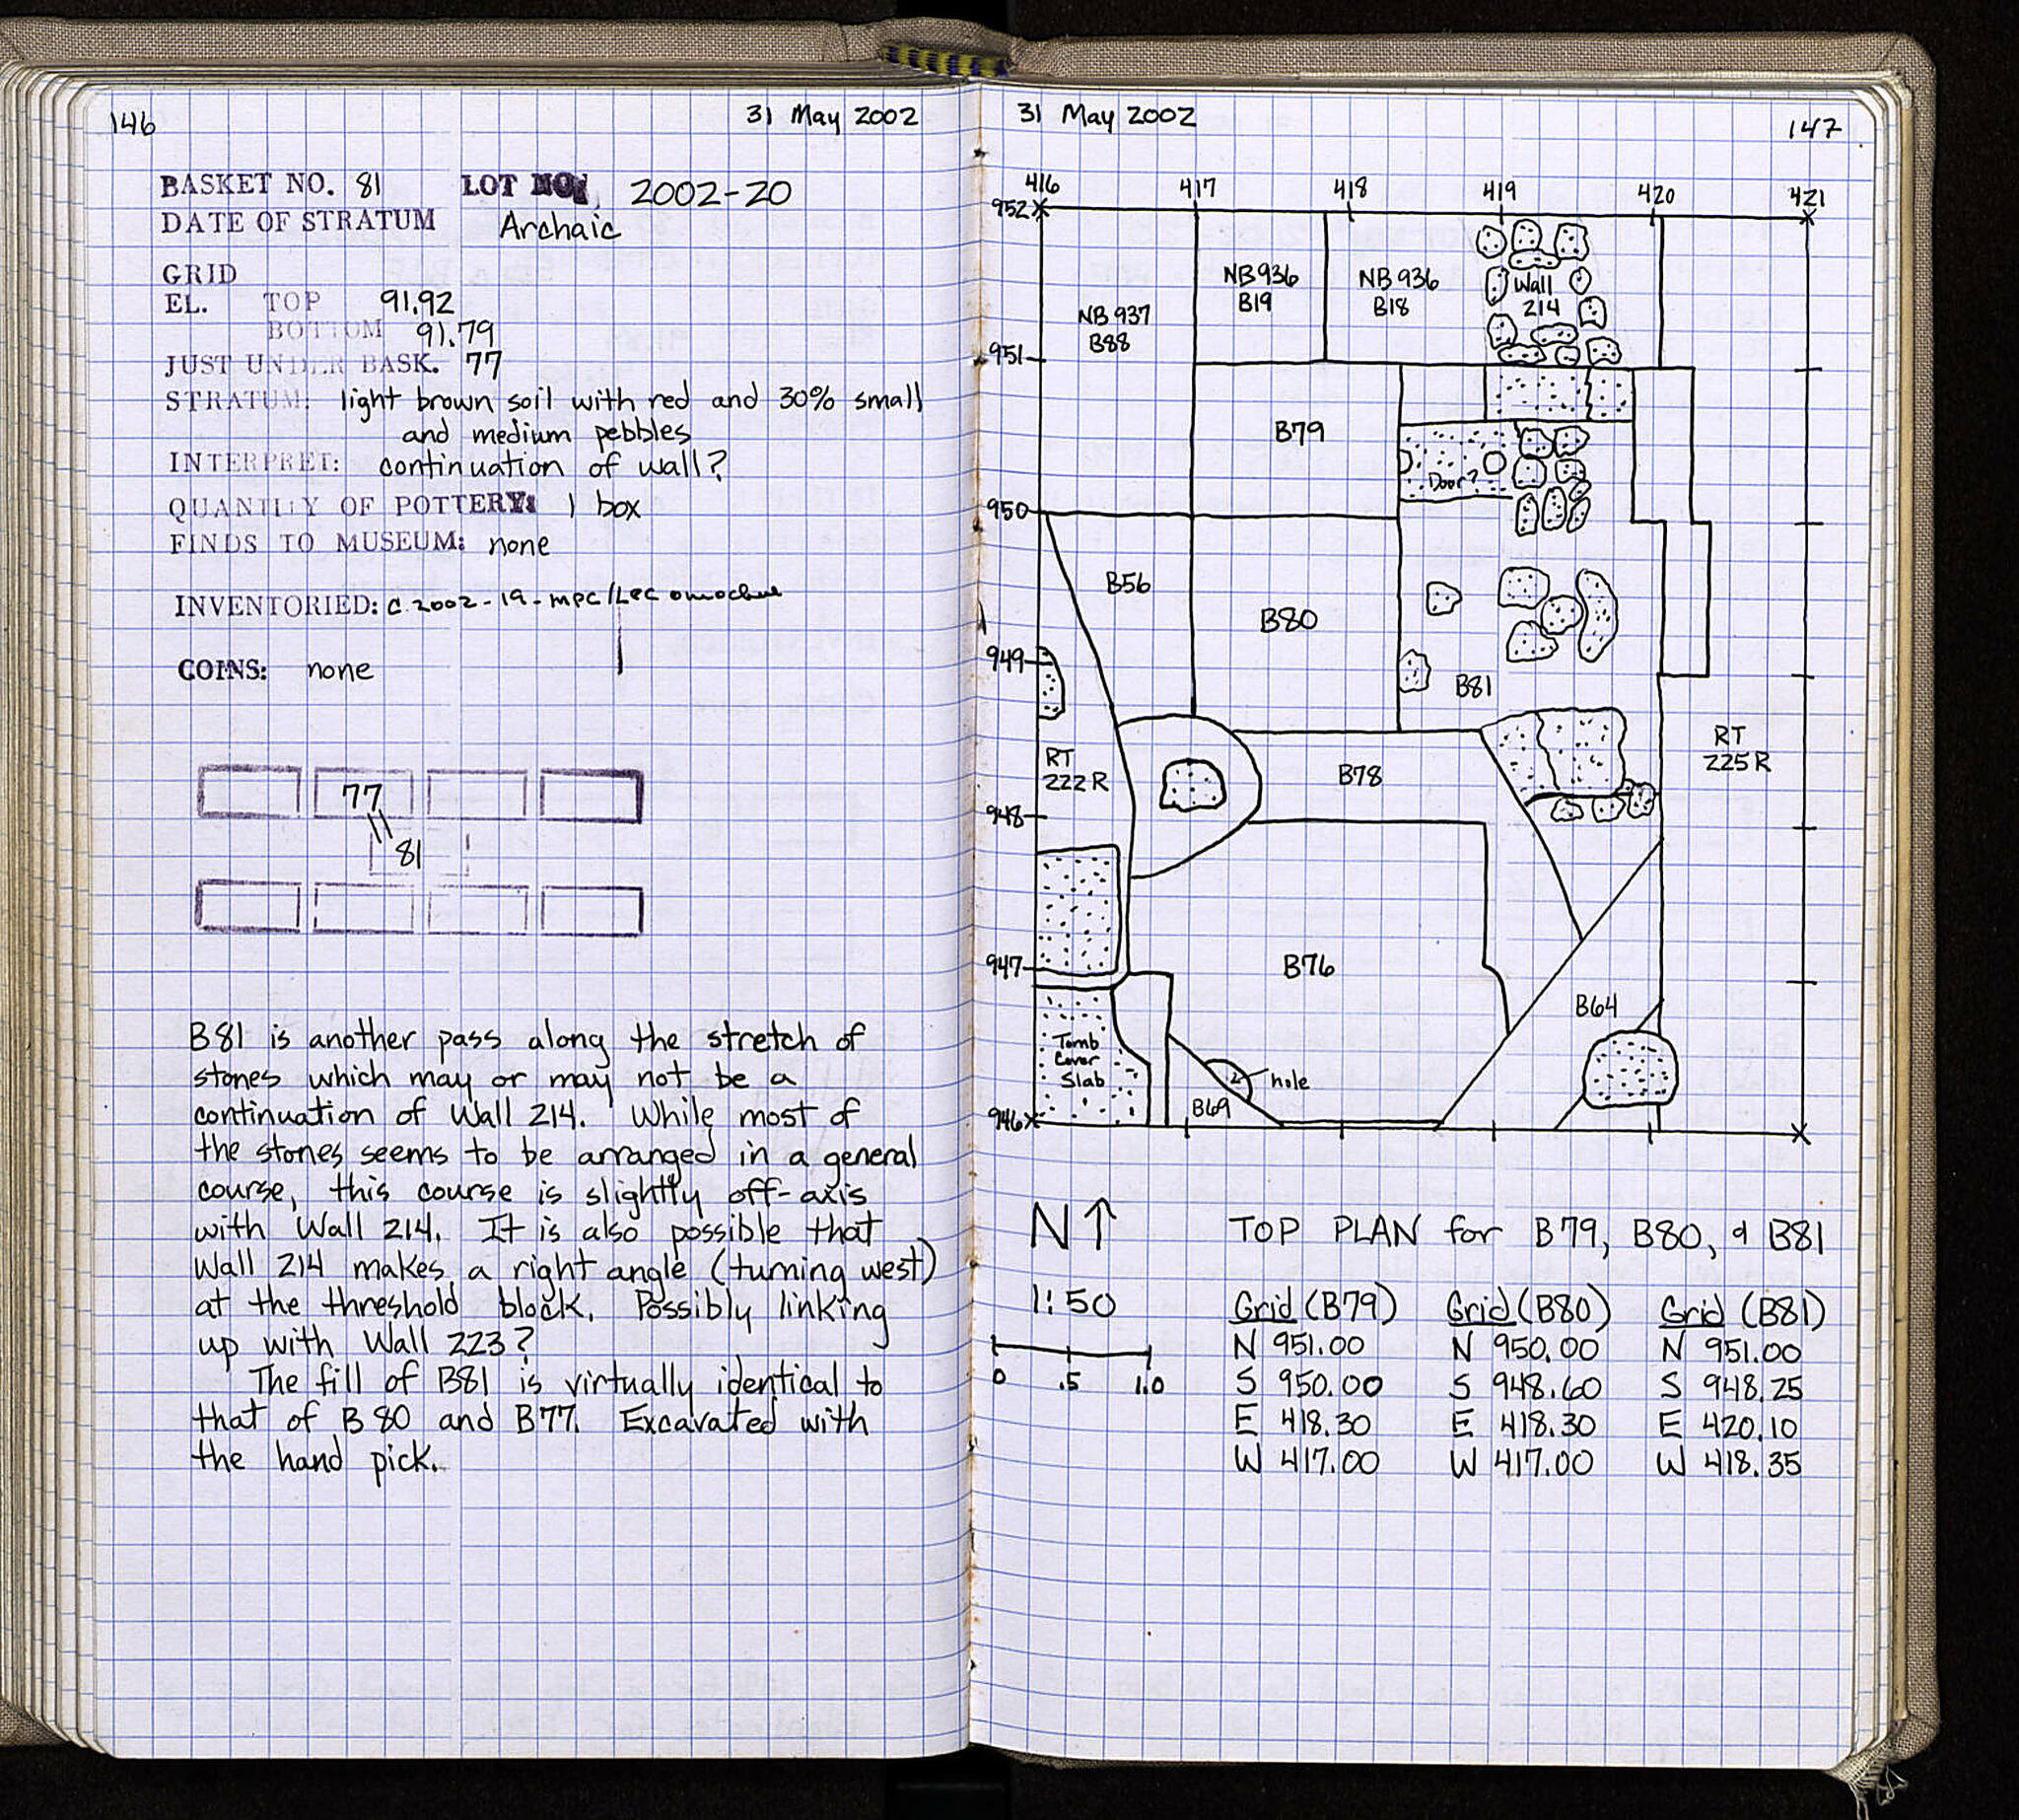 146
31 May 2002
BASKET NO. 81 LOT NO. 2002-20
DATE OF STRATUM Archaic
GRID
EL. TOP 91.92
BOTTOM 91.79
JUST UNDER BASK. 77
STRATUM: light brown soil with red and 30% small
and medium pebbles
INTERPRET: continuation of wall?
QUANTITY OF POTTERY: 1 box
FINDS TO MUSEUM: none
INVENTORIED: C.2002-19-MPC/LPC
COINS: none
77
81
B81 is another pass along the stretch of
stones which may or may not be a
continuation of Wall 214. While most of
the stones seems to be arranged in a general
course, this course is slightly off-axis
with Wall 214. It is also possible that
Wall 214 makes a right angle (turning west)
at the threshold block. Possibly linking
up with Wall 223?
The fill of B81 is virtually identical to
that of B80 and B77. Excavated with
the hand pick.
31 May 2002
147
416 417 418 419 420 421
952
NB 937
B88
NB 936
B19
NB 936
B18
Wall
214
951
B79
Door?
950
B56
B80
949
B81
RT
222 R
B78
RT
225 R
948
947
B76
B64
Tomb
Cover
Slab
hole
B69
946
N↑
TOP PLAN for B79, B80, & B81
1:50
0 .5 1.0
Grid (B79) Grid (B80) Grid (B81)
N 951.00 N 950.00 N 951.00
S 950.00 S 948.60 S 948.25
E 418.30 E 418.30 E 420.10
W 417.00 W 417.00 W 418.35